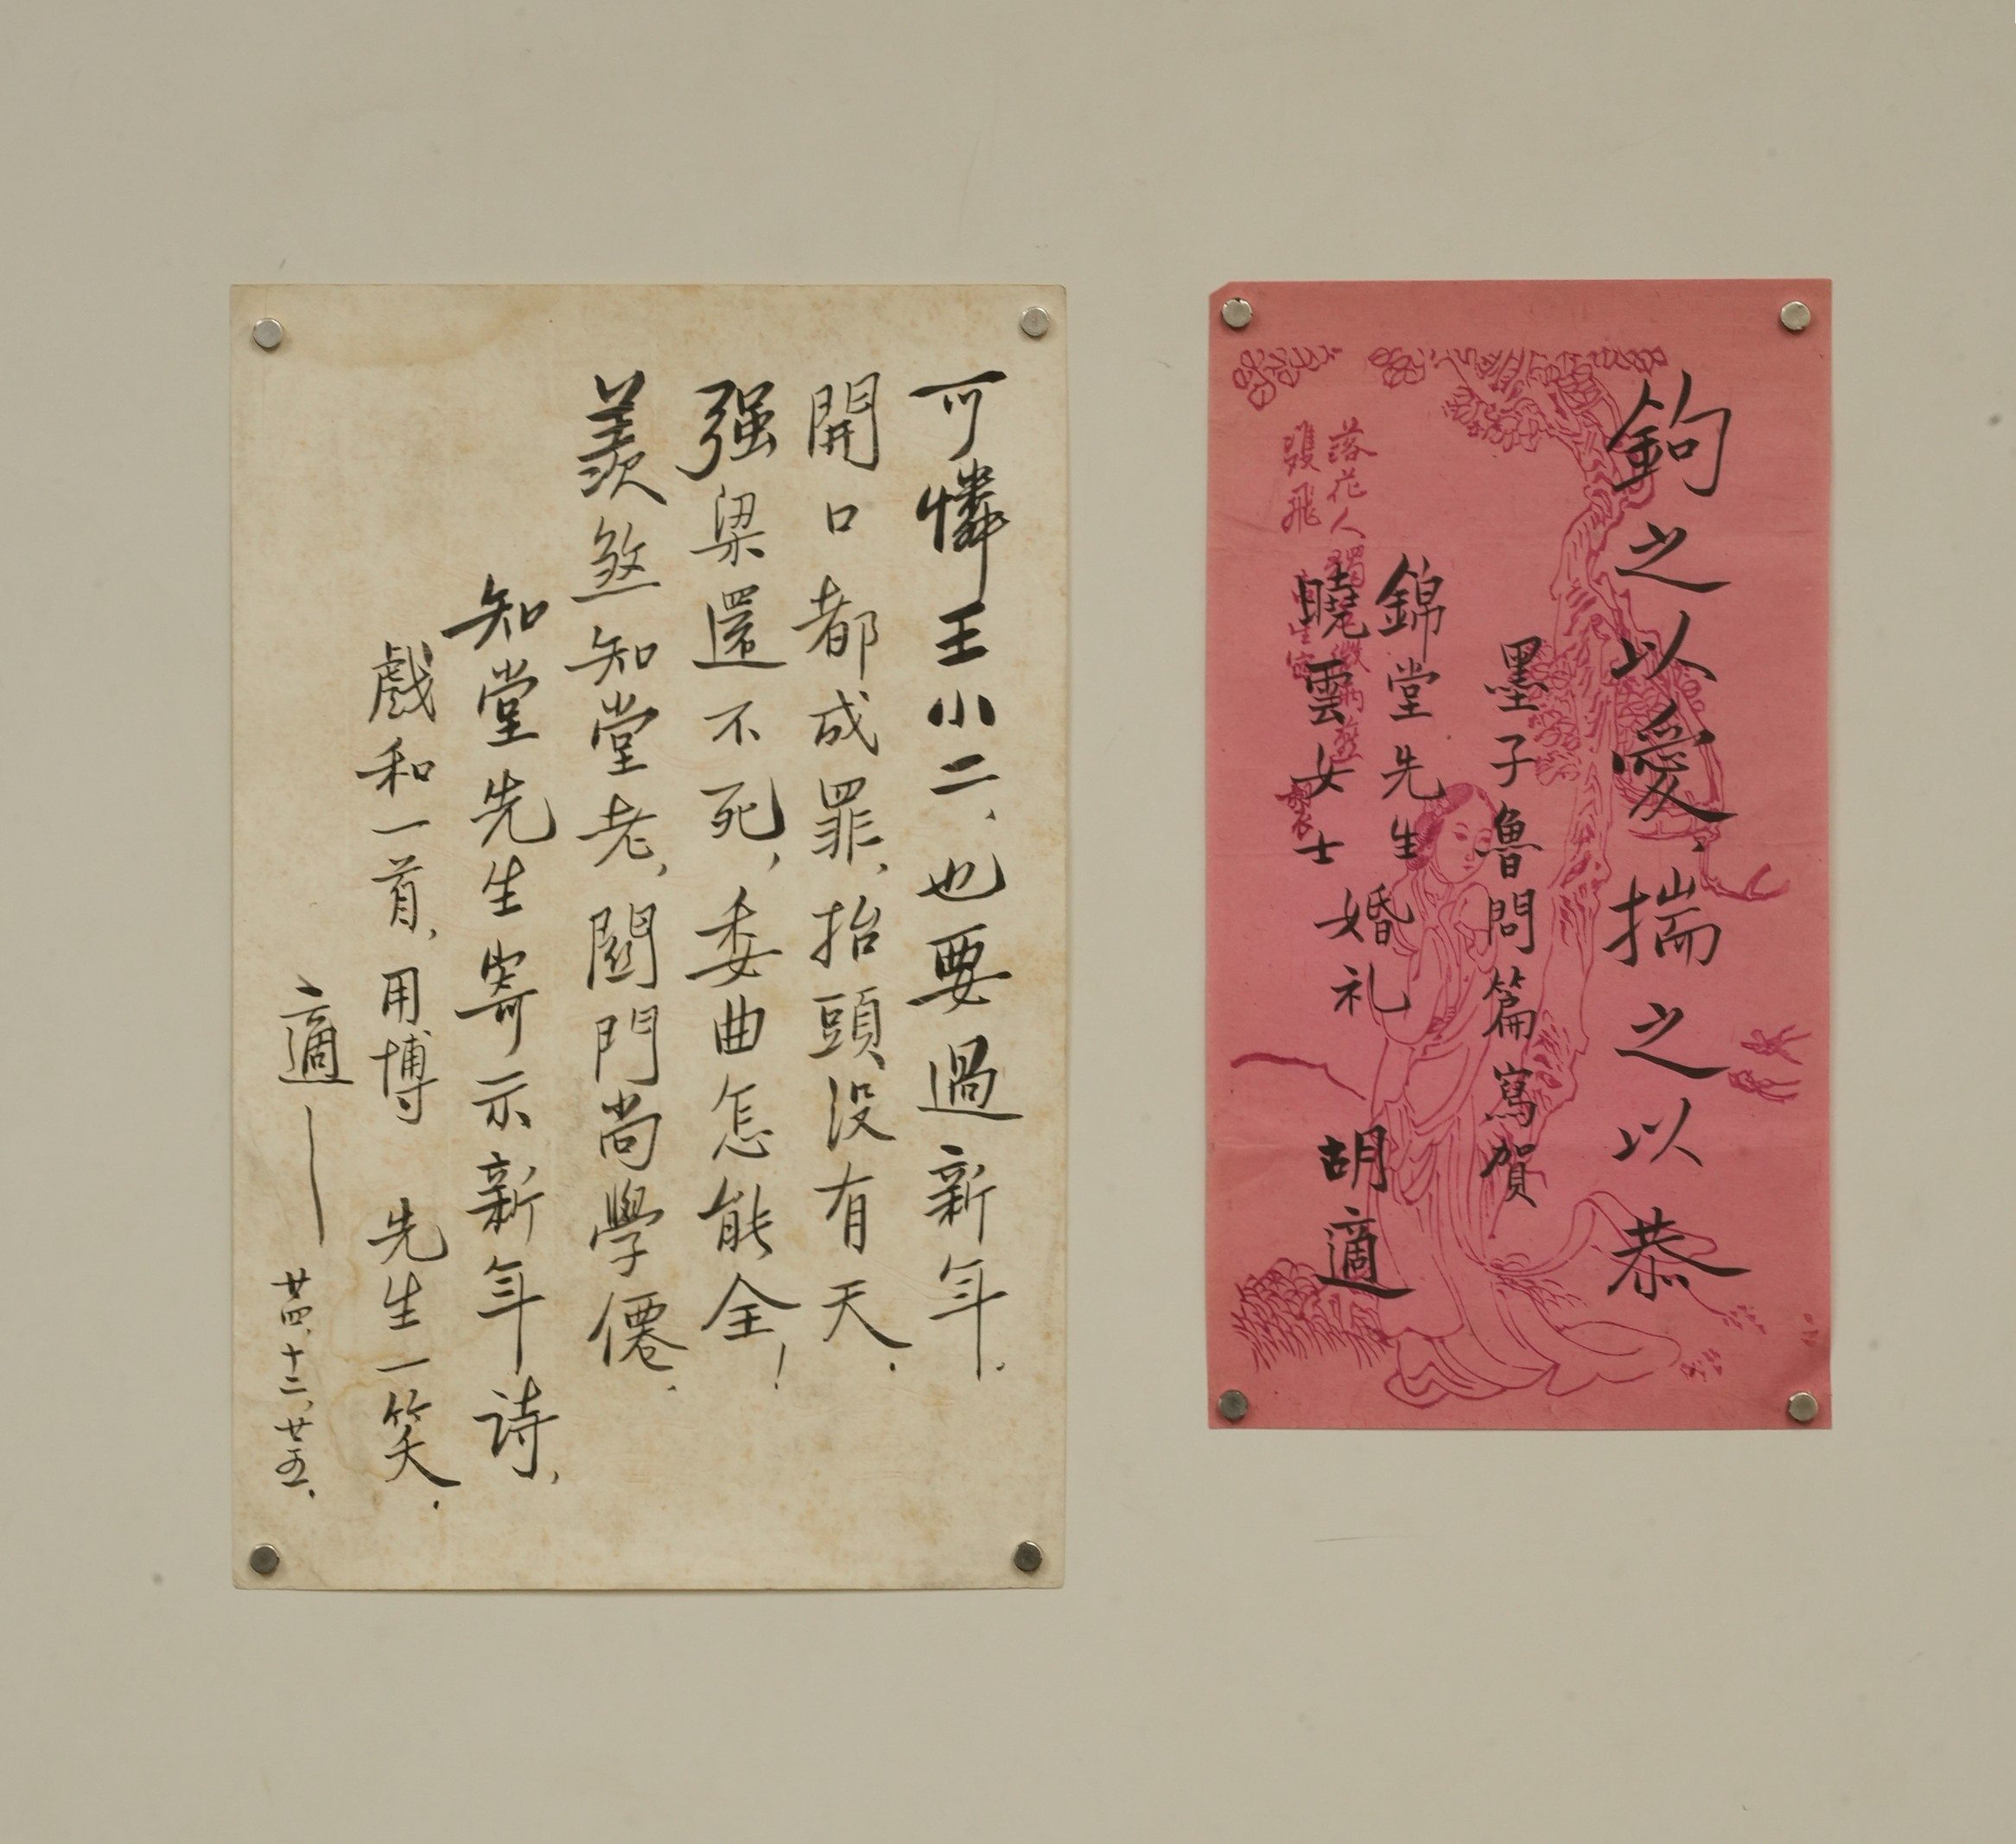 可憐王小二、也要過新年.
開口都成罪、抬頭没有天.
强梁還不死,委曲怎能全!
羨煞知堂老,關門尚學僊.
知堂先生寄示新年詩,
戲和一首,用博 先生一笑.
適——
廿四、十二、廿五.
鉤之以愛,揣之以恭
墨子魯問篇寫賀
錦堂先生
曉雲女士
婚礼
胡適
落花人獨立微雨燕
雙飛